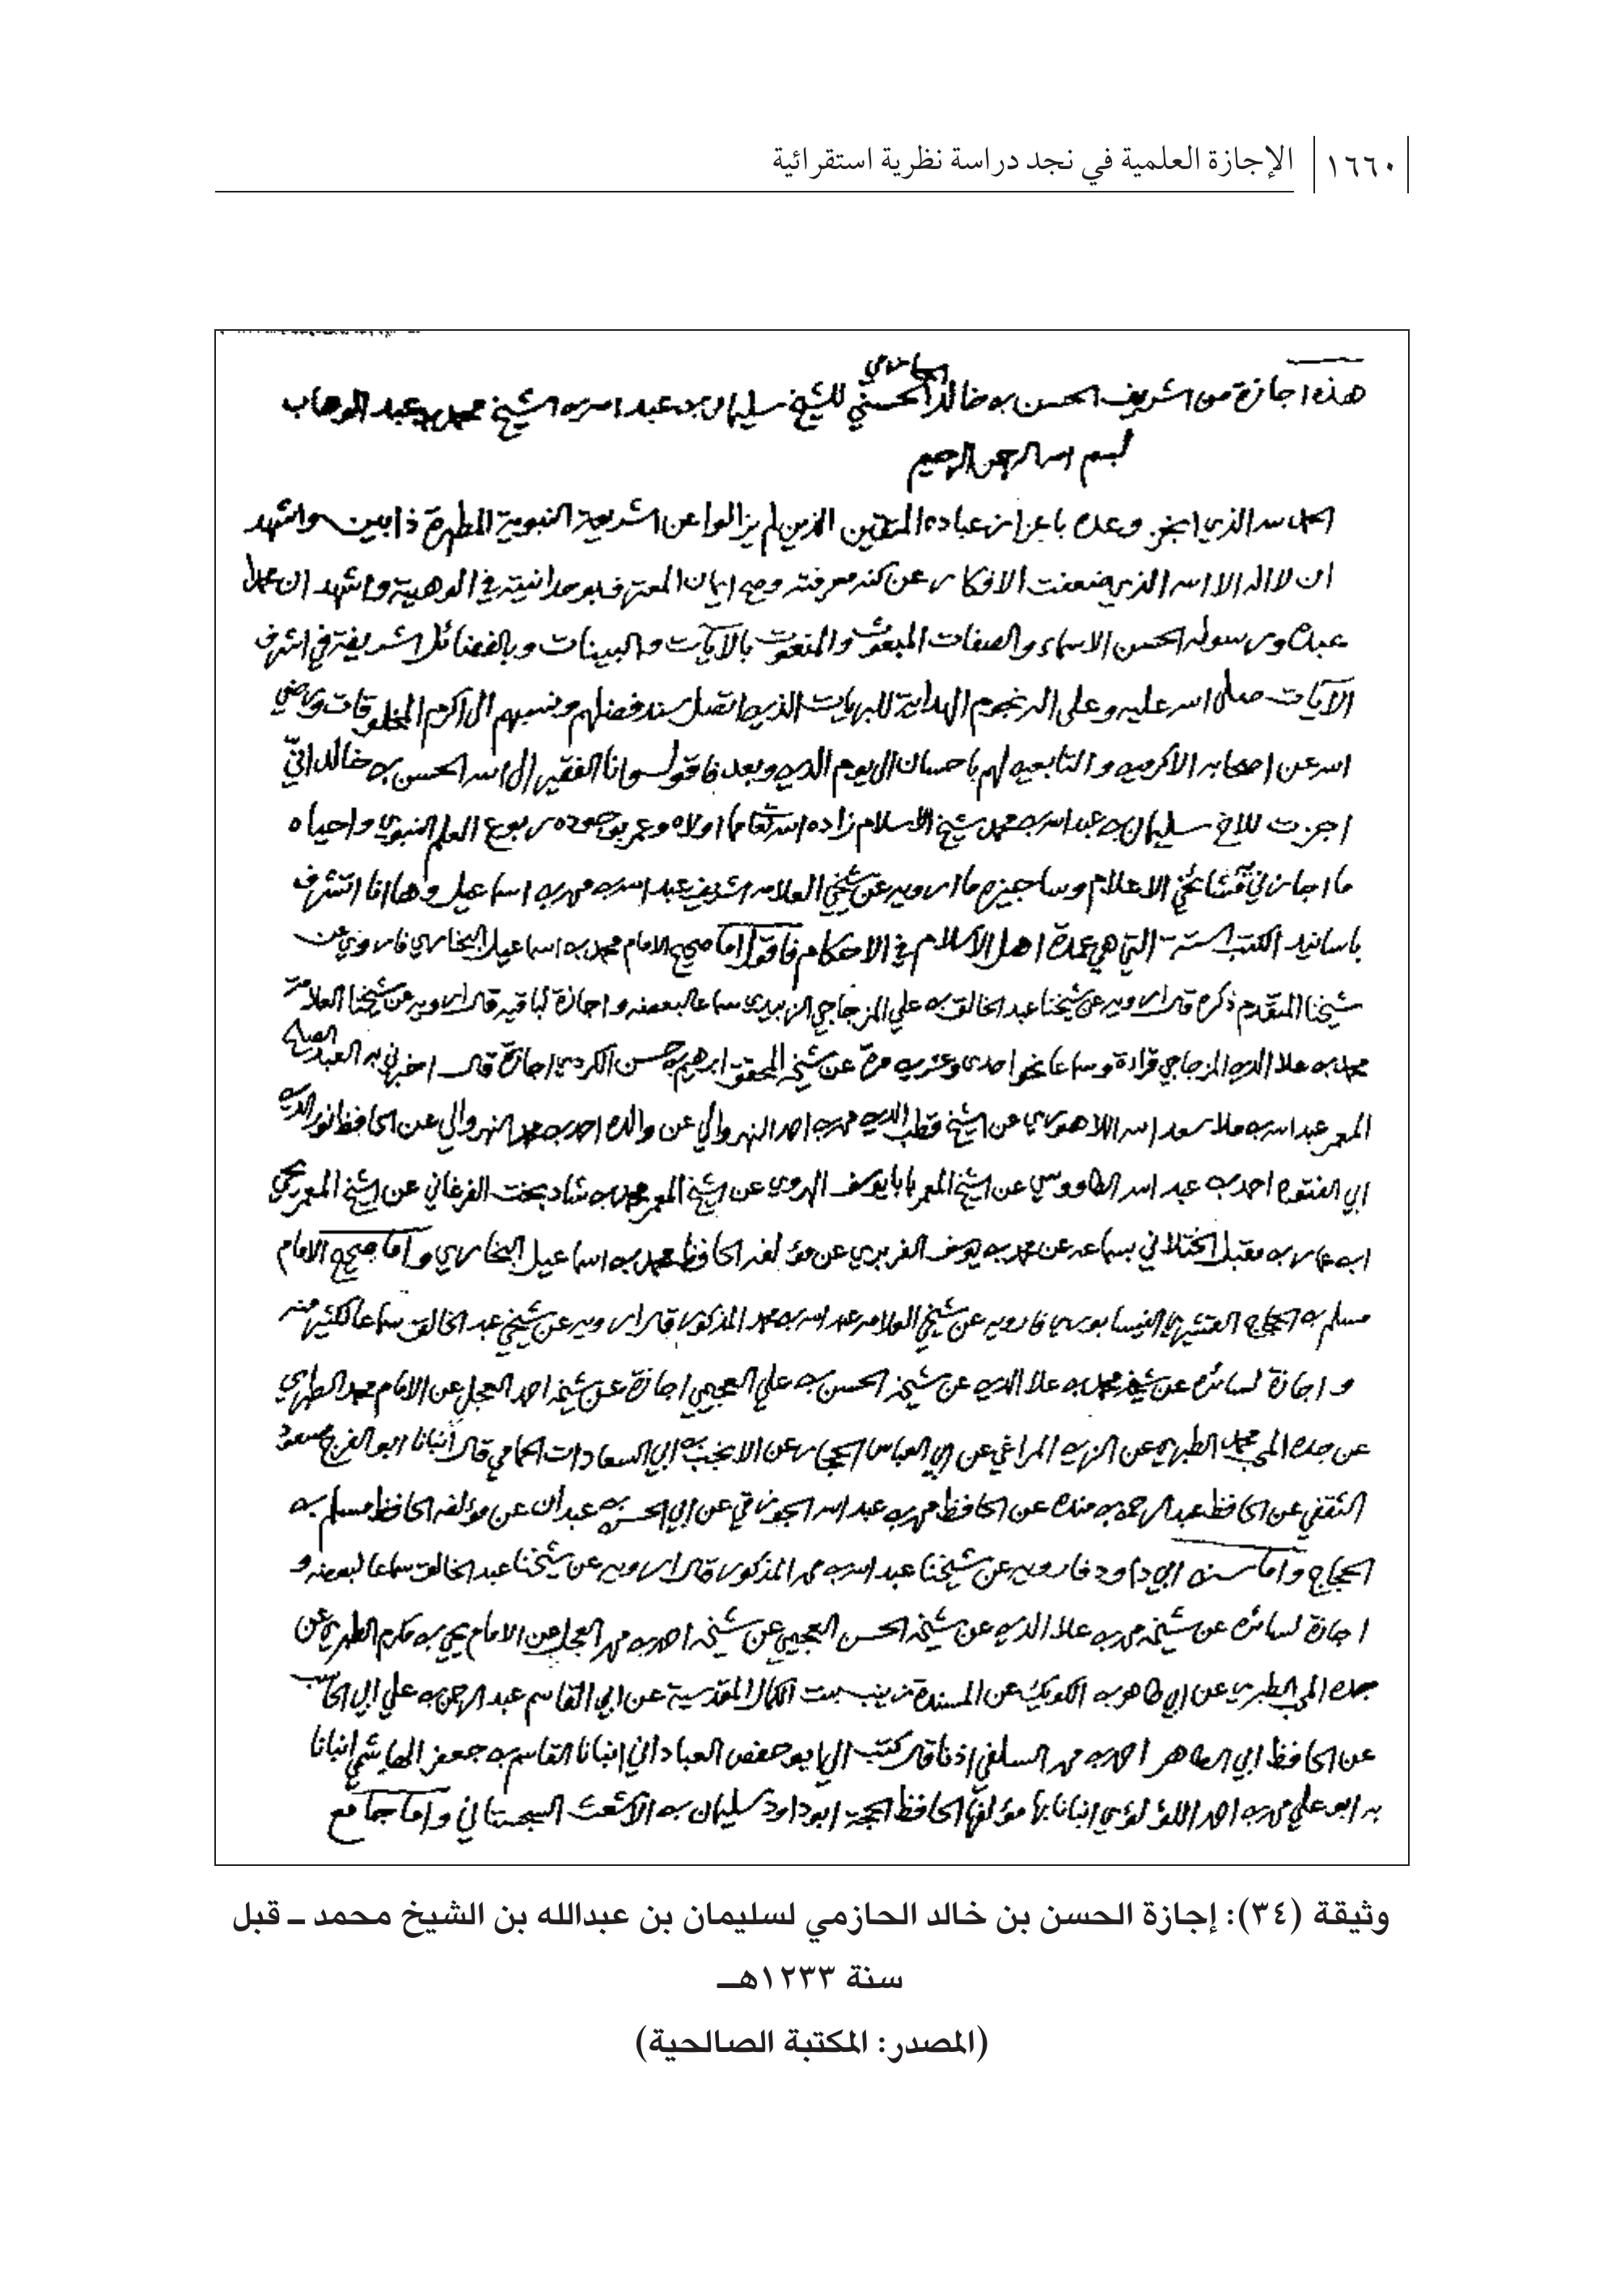 ١٦٦٠ الإجازة العلمية في نجد دراسة نظرية استقرائية
هذه اجازة من الشريف الحسن بن خالد الحسني الحازمي للشيخ سليمان بن عبد الله بن الشيخ محمد بن عبد الوهاب
بسم الله الرحمن الرحيم
الحمد لله الذي انجز وعده باعزاز عباده المتقين الذين لم يزالوا عن الشريعة النبوية المطهرة ذابين واشهد
ان لا اله الا الله الذي ضعفت الافكار عن كنه معرفته وصح ايمان المعترف بوحدانيته في الوهيته واشهد ان محمدا
عبده ورسوله الحسن الاسماء والصفات المبعوث والمنعوت بالآيات والبينات وبالفضائل الشريفة في اشرف
الآيات صلى الله عليه وعلى اله نجوم الهداية للبريات الذين اتصل سند فضلهم ونسبهم الى اكرم المخلوقات ورضي
الله عن اصحابه الاكرمين والتابعين لهم باحسان الى يوم الدين وبعد فاقول وانا الفقير الى الله الحسن بن خالد انّي
اجزت للاخ سليمان بن عبد الله بن محمد شيخ الاسلام زاده الله تعالى مما اولاه وعمر بوجوده ربوع العلم النبوي واحياه
ما اجازني مشائخي الاعلام وساجيزه ما ارويه عن شيخي العلامه الشريف عبد الله بن محمد بن اسماعيل وها انا اتشرف
باسانيد الكتب الستة التي هي عمدة اهل الاسلام في الاحكام فاقول اما صحيح الامام محمد بن اسماعيل البخاري فارويه عن
شيخنا المتقدم ذكره قال ارويه عن شيخنا عبد الخالق بن علي المزجاجي الزبيدي سماعا لبعضه واجازة لباقيه قال ارويه عن شيخنا العلامة
محمد بن علا الدين المزجاجي قراءة وسماعا نحو احدى وعشرين مرة عن شيخه المحقق ابرهيم بن حسن الكردي اجازة قال اخبرني به العبد الصالح
المعمر عبد الله بن ملا سعد الله اللاهوري عن الشيخ قطب الدين محمد بن احمد النهروالي عن والده احمد بن محمد النهروالي عن الحافظ نور الدين
ابي الفتوح احمد بن عبد الله الطاووسي عن الشيخ المعمر بابا يوسف الهروي عن الشيخ المعمر محمد بن شاد بخت الفرغاني عن الشيخ المعمر يحيى
ابن عمار بن مقبل الختلاني بسماعه عن محمد بن يوسف الفربري عن مؤلفه الحافظ محمد بن اسماعيل البخاري واما صحيح الامام
مسلم بن الحجاج القشيري النيسابوري فارويه عن شيخي العلامه عبد الله بن محمد المذكور قال ارويه عن شيخي عبد الخالق سماعا لكثير منه
واجازة لسائره عن شيخه محمد بن علا الدين عن شيخه الحسن بن علي العجيمي اجازة عن شيخه احمد العجل عن الامام محمد الطبري
عن جده المحب محمد الطبري عن الزين المراغي عن ابي العباس الحجار عن الانجب بن ابي السعادات الحمامي قال انبانا ابو الفرج مسعود
الثقفي عن الحافظ عبد الرحمن بن منده عن الحافظ محمد بن عبد الله الجوزقي عن ابي الحسن بن عبدان عن مؤلفه الحافظ مسلم بن
الحجاج واما سنن ابي داود فارويه عن شيخنا عبد الله بن محمد المذكور قال ارويه عن شيخنا عبد الخالق سماعا لبعضه و
اجازة لسائره عن شيخه محمد بن علا الدين عن شيخه الحسن العجيمي عن شيخه احمد بن محمد العجل عن الامام يحيى بن مكرم الطبري عن
جده المحب الطبري عن ابي طاهر بن الكويك عن المسندة زينب بنت الكمال المقدسية عن ابي القاسم عبد الرحمن بن علي ابي الحاسب
عن الحافظ ابي الطاهر احمد بن محمد السلفي اذنا قال كتب الي ابو حفص العباداني انبانا القاسم بن جعفر الهاشمي انبانا
به ابو علي محمد بن احمد اللؤلؤي انبانا بها مؤلفها الحافظ الحجة ابو داود سليمان بن الاشعث السجستاني واما جامع
وثيقة (٣٤): إجازة الحسن بن خالد الحازمي لسليمان بن عبدالله بن الشيخ محمد ــ قبل
سنة ١٢٣٣هــ
(المصدر: المكتبة الصالحية)